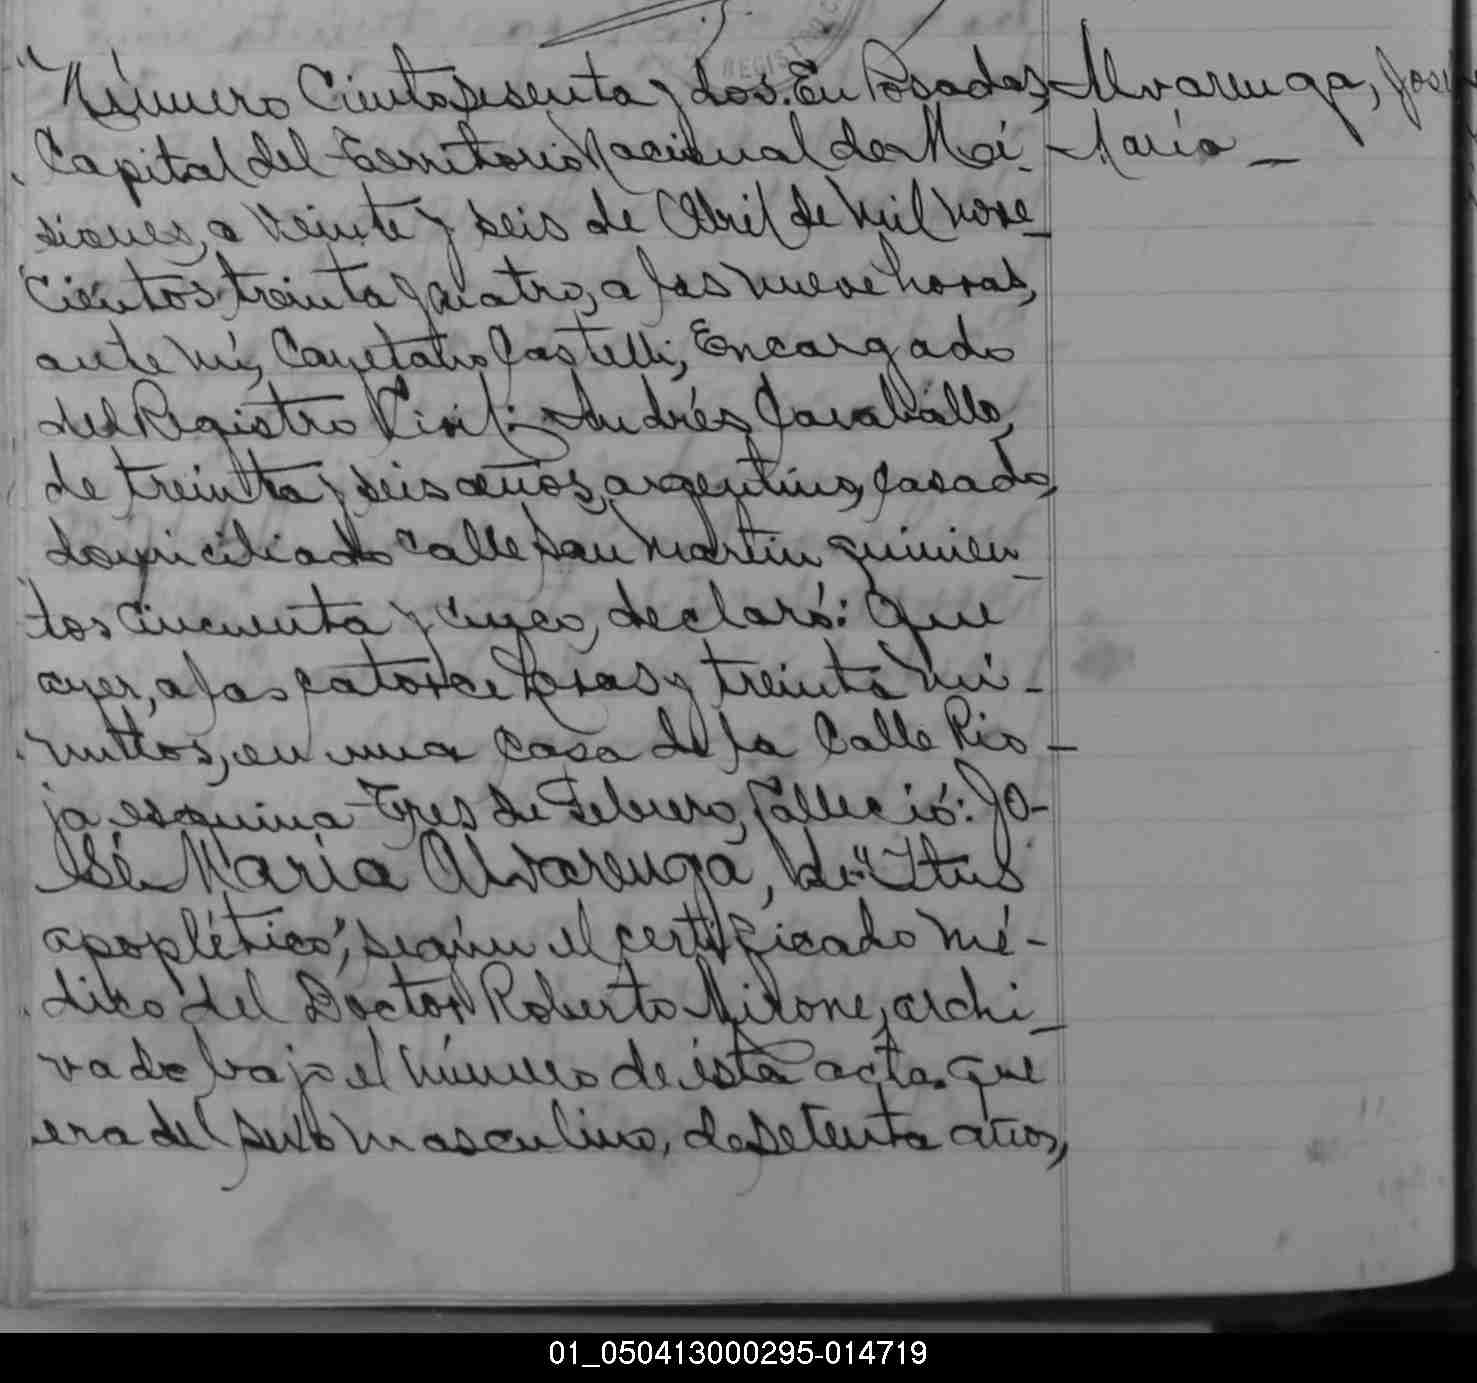 Número Ciento sesenta y dos. En Posadas, Alvarenga, José
Capital del Territorio Nacional de Mi- María
siones, a veinte y seis de Abril de mil nove-
cientos treinta y cuatro, a las nueve horas,
ante mí, Cayetano Castelli, Encargado
del Registro Civil; Andrés Caraballo,
de treinta y seis años, argentino, casado,
domiciliado calle San Martin quinien-
tos cincuenta y cinco, declaró: Que
ayer, a las catorce horas y treinta mi-
nuttos, en una casa de la Calle Rio-
ja esquina Tres de Febrero, falleció: Jo-
sé Maria Alvarenga, de "Itus
apoplético", según el certificado mé-
dico del Doctor Roberto Mirone, archi-
vado bajo el número de ésta acta. Que
era del sexo masculino, de setenta años,
REGIST
01_050413000295-014719